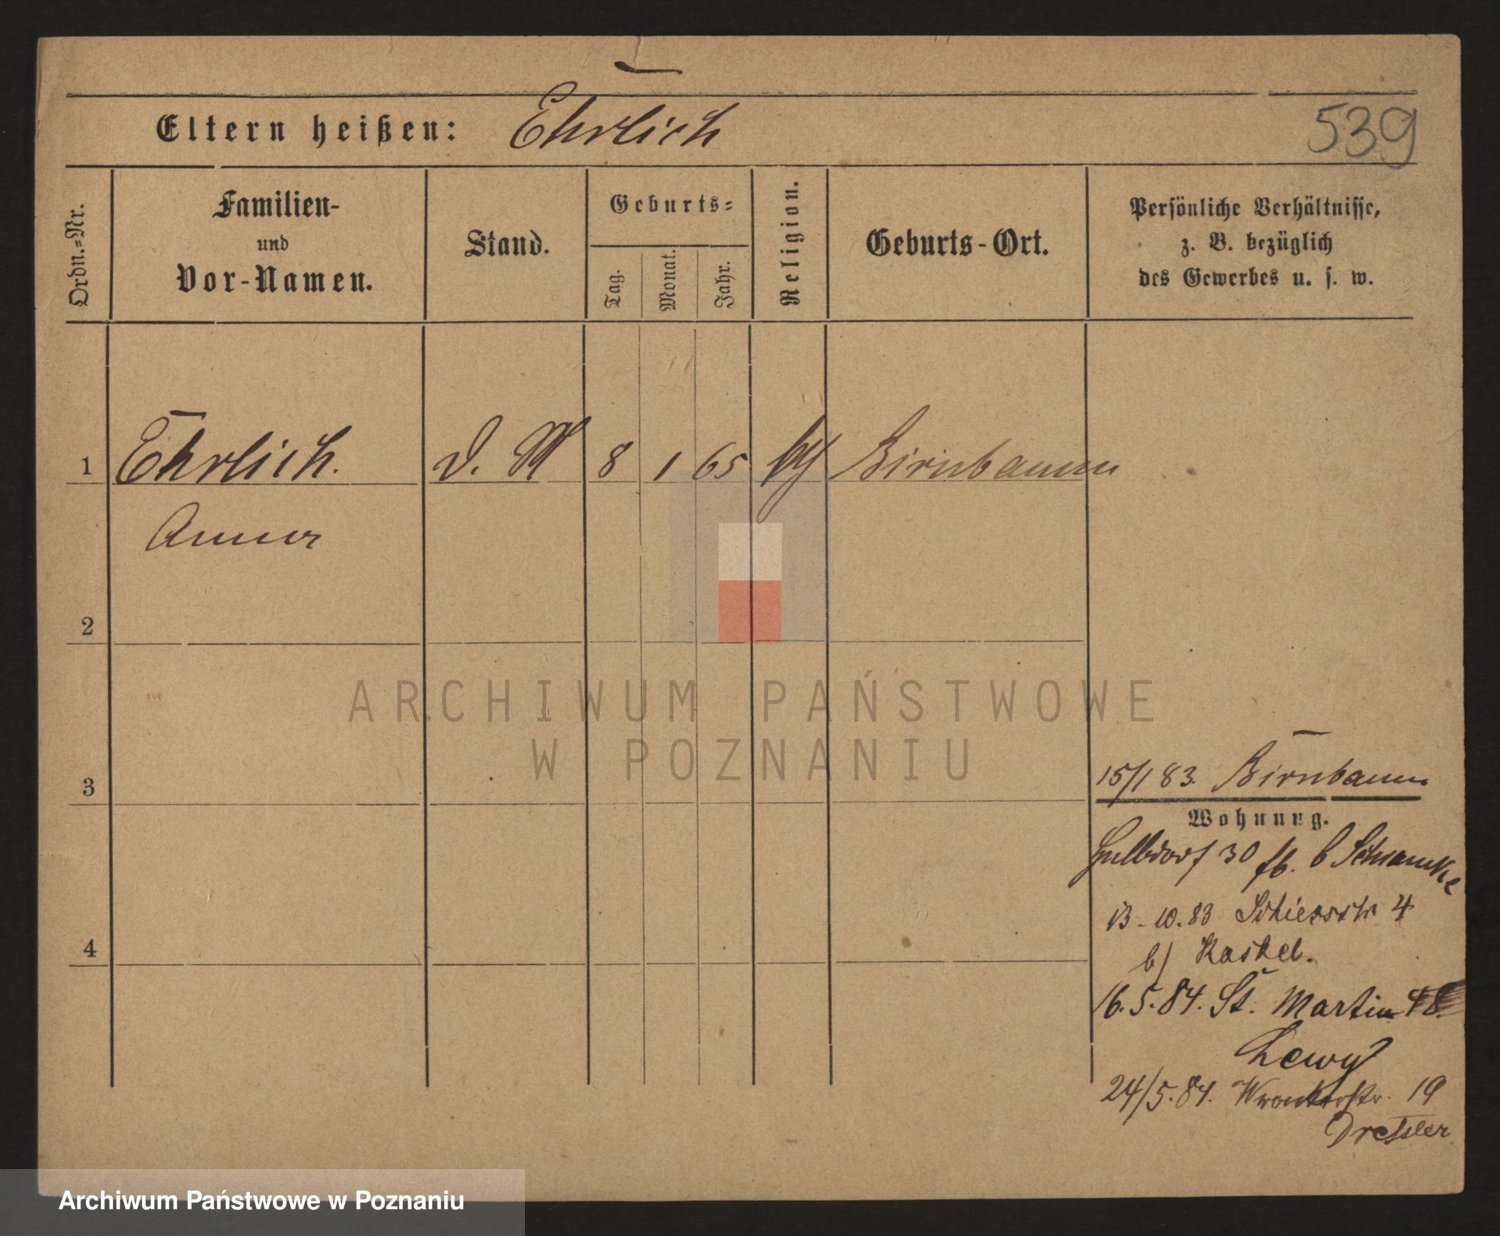 Eltern heißen: Ehrlich
539
Ordn.=Nr.
Familien-
und
Vor-Namen.
Stand.
Geburts=
Tag.
Monat.
Jahr.
Religion.
Geburts-Ort.
Persönliche Verhältnisse,
z. B. bezüglich
des Gewerbes u. s. w.
1 Ehrlich. D. M 8 1 65 Birnbaum
Anna
2
3
4
15/1 83. Birnbaum
Wohnung.
30 b Schwanke
13-10.83 Schiesstr 4
b) Kaskel.
16.5.84. St. Martin 48
Lewy
24/5.84. Wronkerstr. 19
Dressler
ARCHIWUM PAŃSTWOWE
W POZNANIU
Archiwum Państwowe w Poznaniu